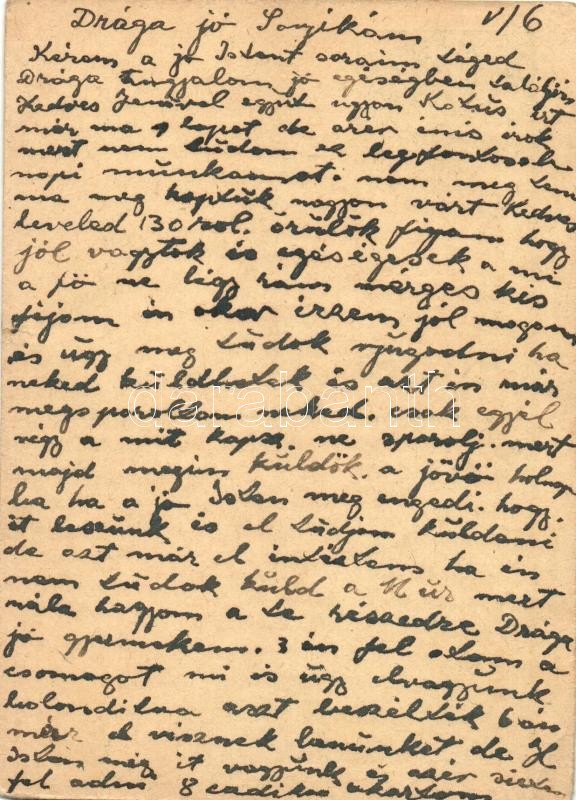 Drága jó Sanyikám V/6
Kérem a jó Istent soraim téged
Drága angyalom jó egéségben találjon
Kedves Jenővel együt ugyan Katus írt
már ma 1 lapot de azér énis írok
mert nem tudom ez legfontosab
napi munkaamat. nem meg tenni
ma meg kaptuk nagyon várt Kedves
leveled 130 rol. örülök fiam hogy
jól vagytok és egéségesek a mi
a fö ne légy rám mérges kis
fijam én akor érzem jól magam
és úgy meg tudok nyugodni ha
neked küldhetek és azt én már
megsporoltam neked. csak egyél
végy a mit kapsz. ne sporolj. mert
majd megin küldök. a jövö holnap
ba ha a jó Isten meg engedi. hogy
it leszünk és el tudjam küldeni
de ezt már el intéztem ha én
nem tudok küld a N úr mert
nála hagyom a te részedre Drága
jó gyermekem. 3 án fel adtam a
csomagot mi is úgy vagyunk
bolonditva azt beszélték 6 án
már el visznek benünket de H
Isten még it vagyunk és azér
fel adni 8 cadik akartam
darabanth